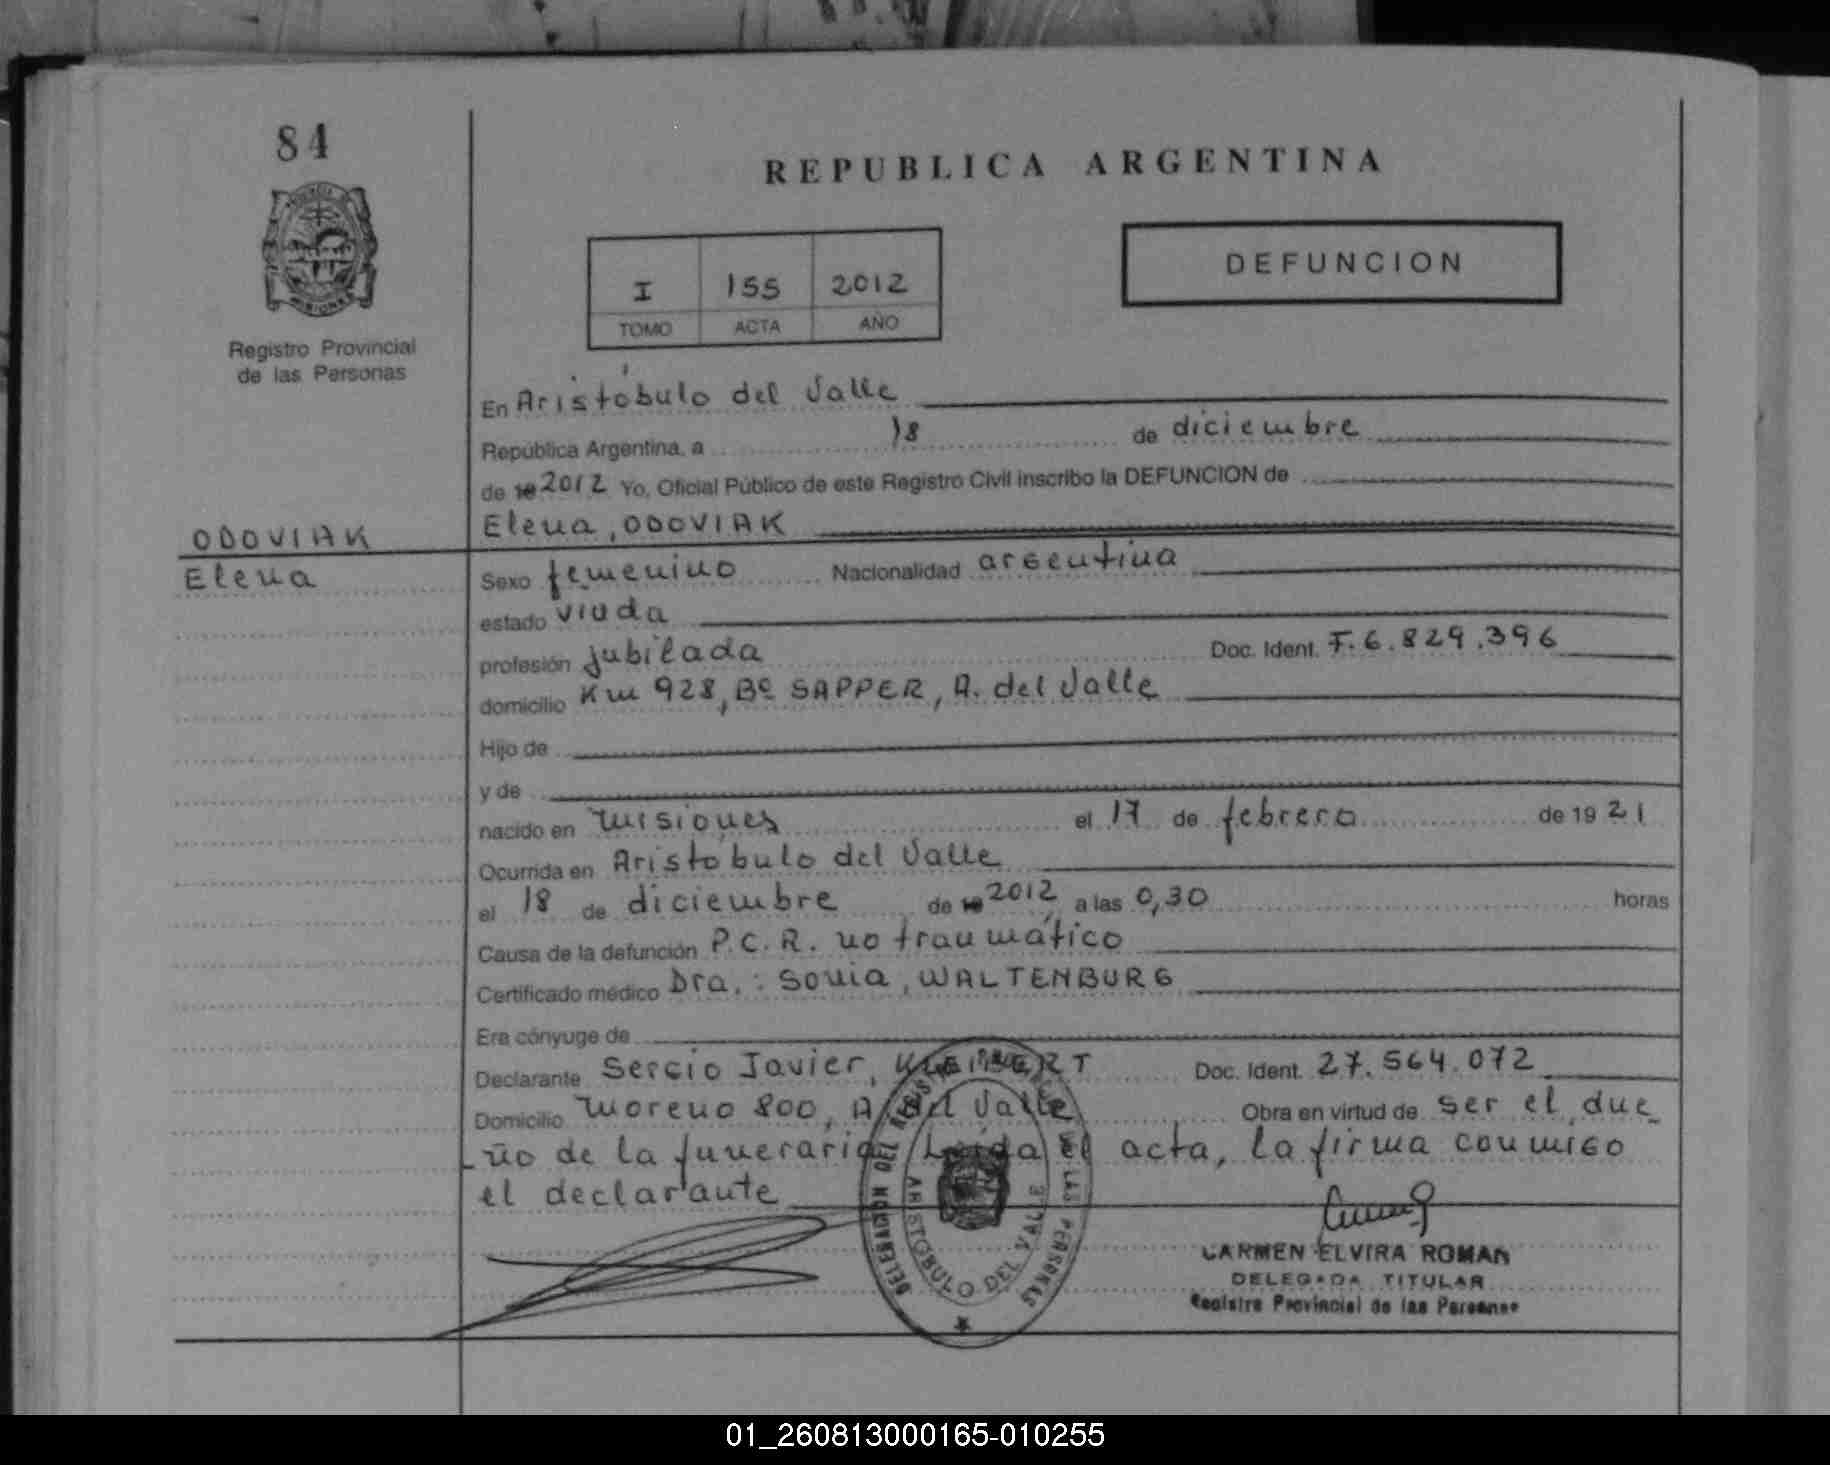 84
REPUBLICA ARGENTINA
PROVINCIA DE
MISIONES
Registro Provincial
de las Personas
I 155 2012
TOMO ACTA AÑO
DEFUNCION
En Aristóbulo del Valle
República Argentina, a 18 de diciembre
de 19 2012 Yo, Oficial Público de este Registro Civil inscribo la DEFUNCION de
ODOVIAK
Elena
Elena, ODOVIAK
Sexo femenino Nacionalidad argentina
estado viuda
profesión jubilada Doc. Ident. F.6.829.396
domicilio Km 928, Bº SAPPER, A. del Valle
Hijo de
y de
nacido en misiones el 17 de febrero de 1921
Ocurrida en Aristóbulo del Valle
el 18 de diciembre de 19 2012, a las 0,30 horas
Causa de la defunción P.C.R. no traumático
Certificado médico Dra.: Sonia, WALTENBURG
Era cónyuge de
Declarante Sergio Javier, KLEIBERT Doc. Ident. 27.564.072
Domicilio Moreno 800, A. del Valle Obra en virtud de ser el due_
_ño de la funeraria. Leída el acta, la firma conmigo
el declarante
DELEGACION DEL REGISTRO PROVINCIAL DE LAS PERSONAS
ARISTOBULO DEL VALLE
CARMEN ELVIRA ROMAN
DELEGADA TITULAR
Registro Provincial de las Personas
01_260813000165-010255